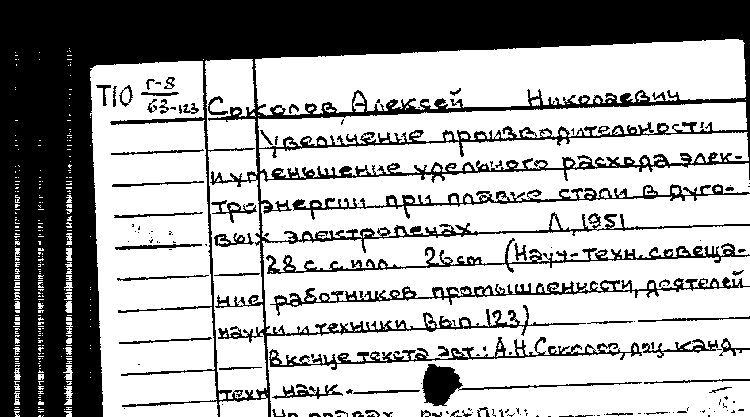 Т10 Г-8/63-123 Соколов, Алексей Николаевич
Увеличение производительности
и уменьшение удельного расхода элек-
троэнергии при плавке стали в дуго-
вых электропечах. Л., 1951
28 с. с илл. 26 см (Науч-техн. совеща-
ние работников промышленности, деятелей
науки и техники. Вып. 123).
В конце текста авт.: А.Н. Соколов, доц. канд.
техн. наук.
На правах рукописи